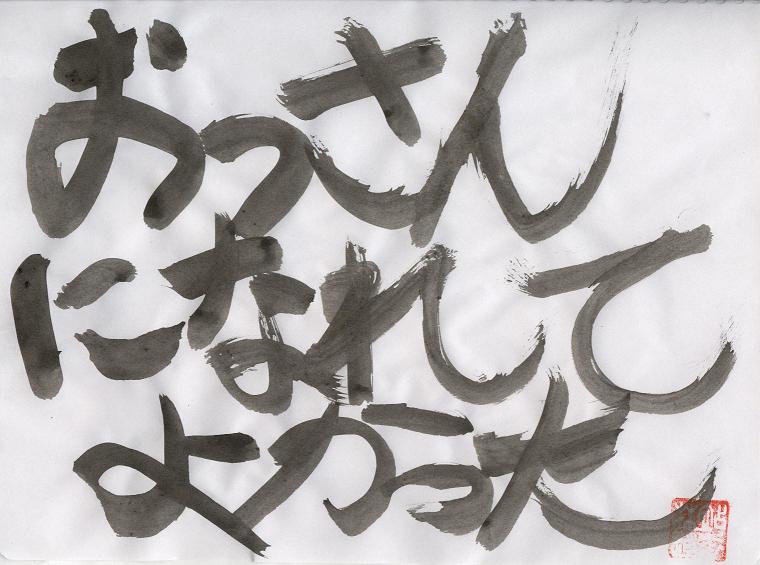 おっさん
になれて
よかった